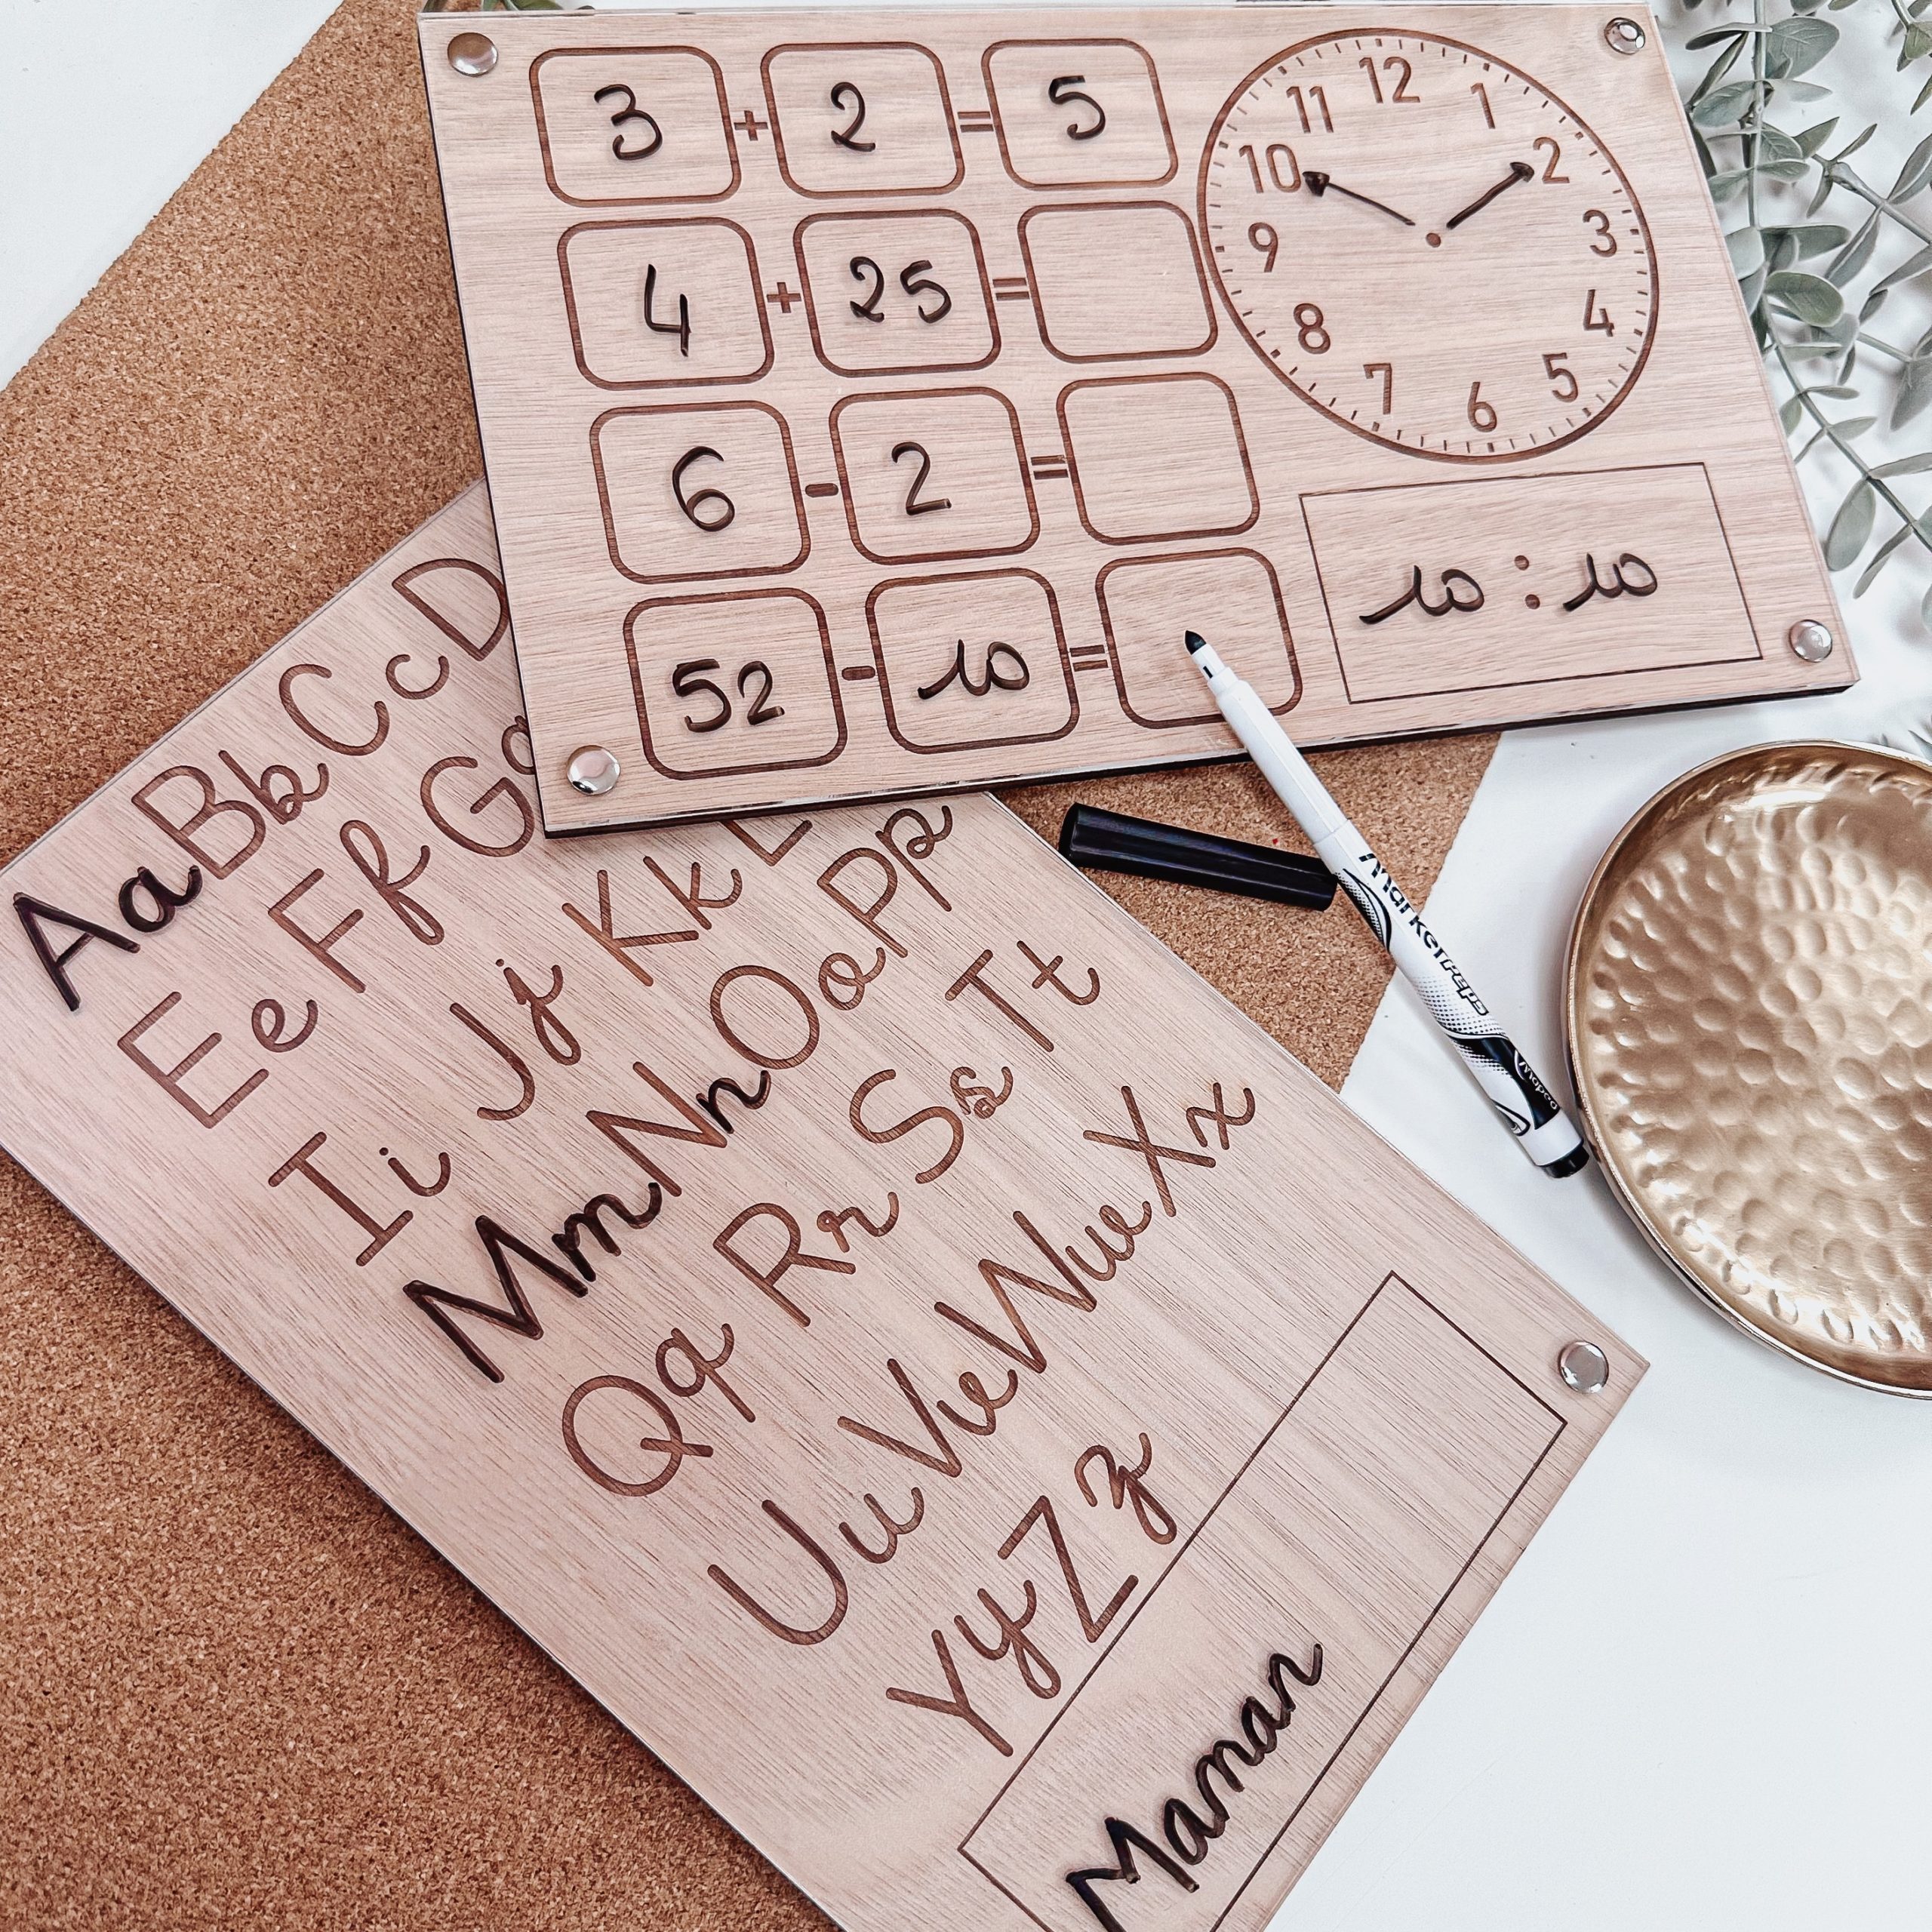 3 + 2 = 5
4 + 25 =
6 - 2 =
52 - 10 =
12
1
2
3
4
5
6
7
8
9
10
11
10 : 10
Aa Bb Cc D
Ee Ff G
Ii Jj Kk L
Mm Nn Oo Pp
Qq Rr Ss Tt
Uu Vv Ww Xx
Yy Zz
Maman
Marker PEPS
Maped